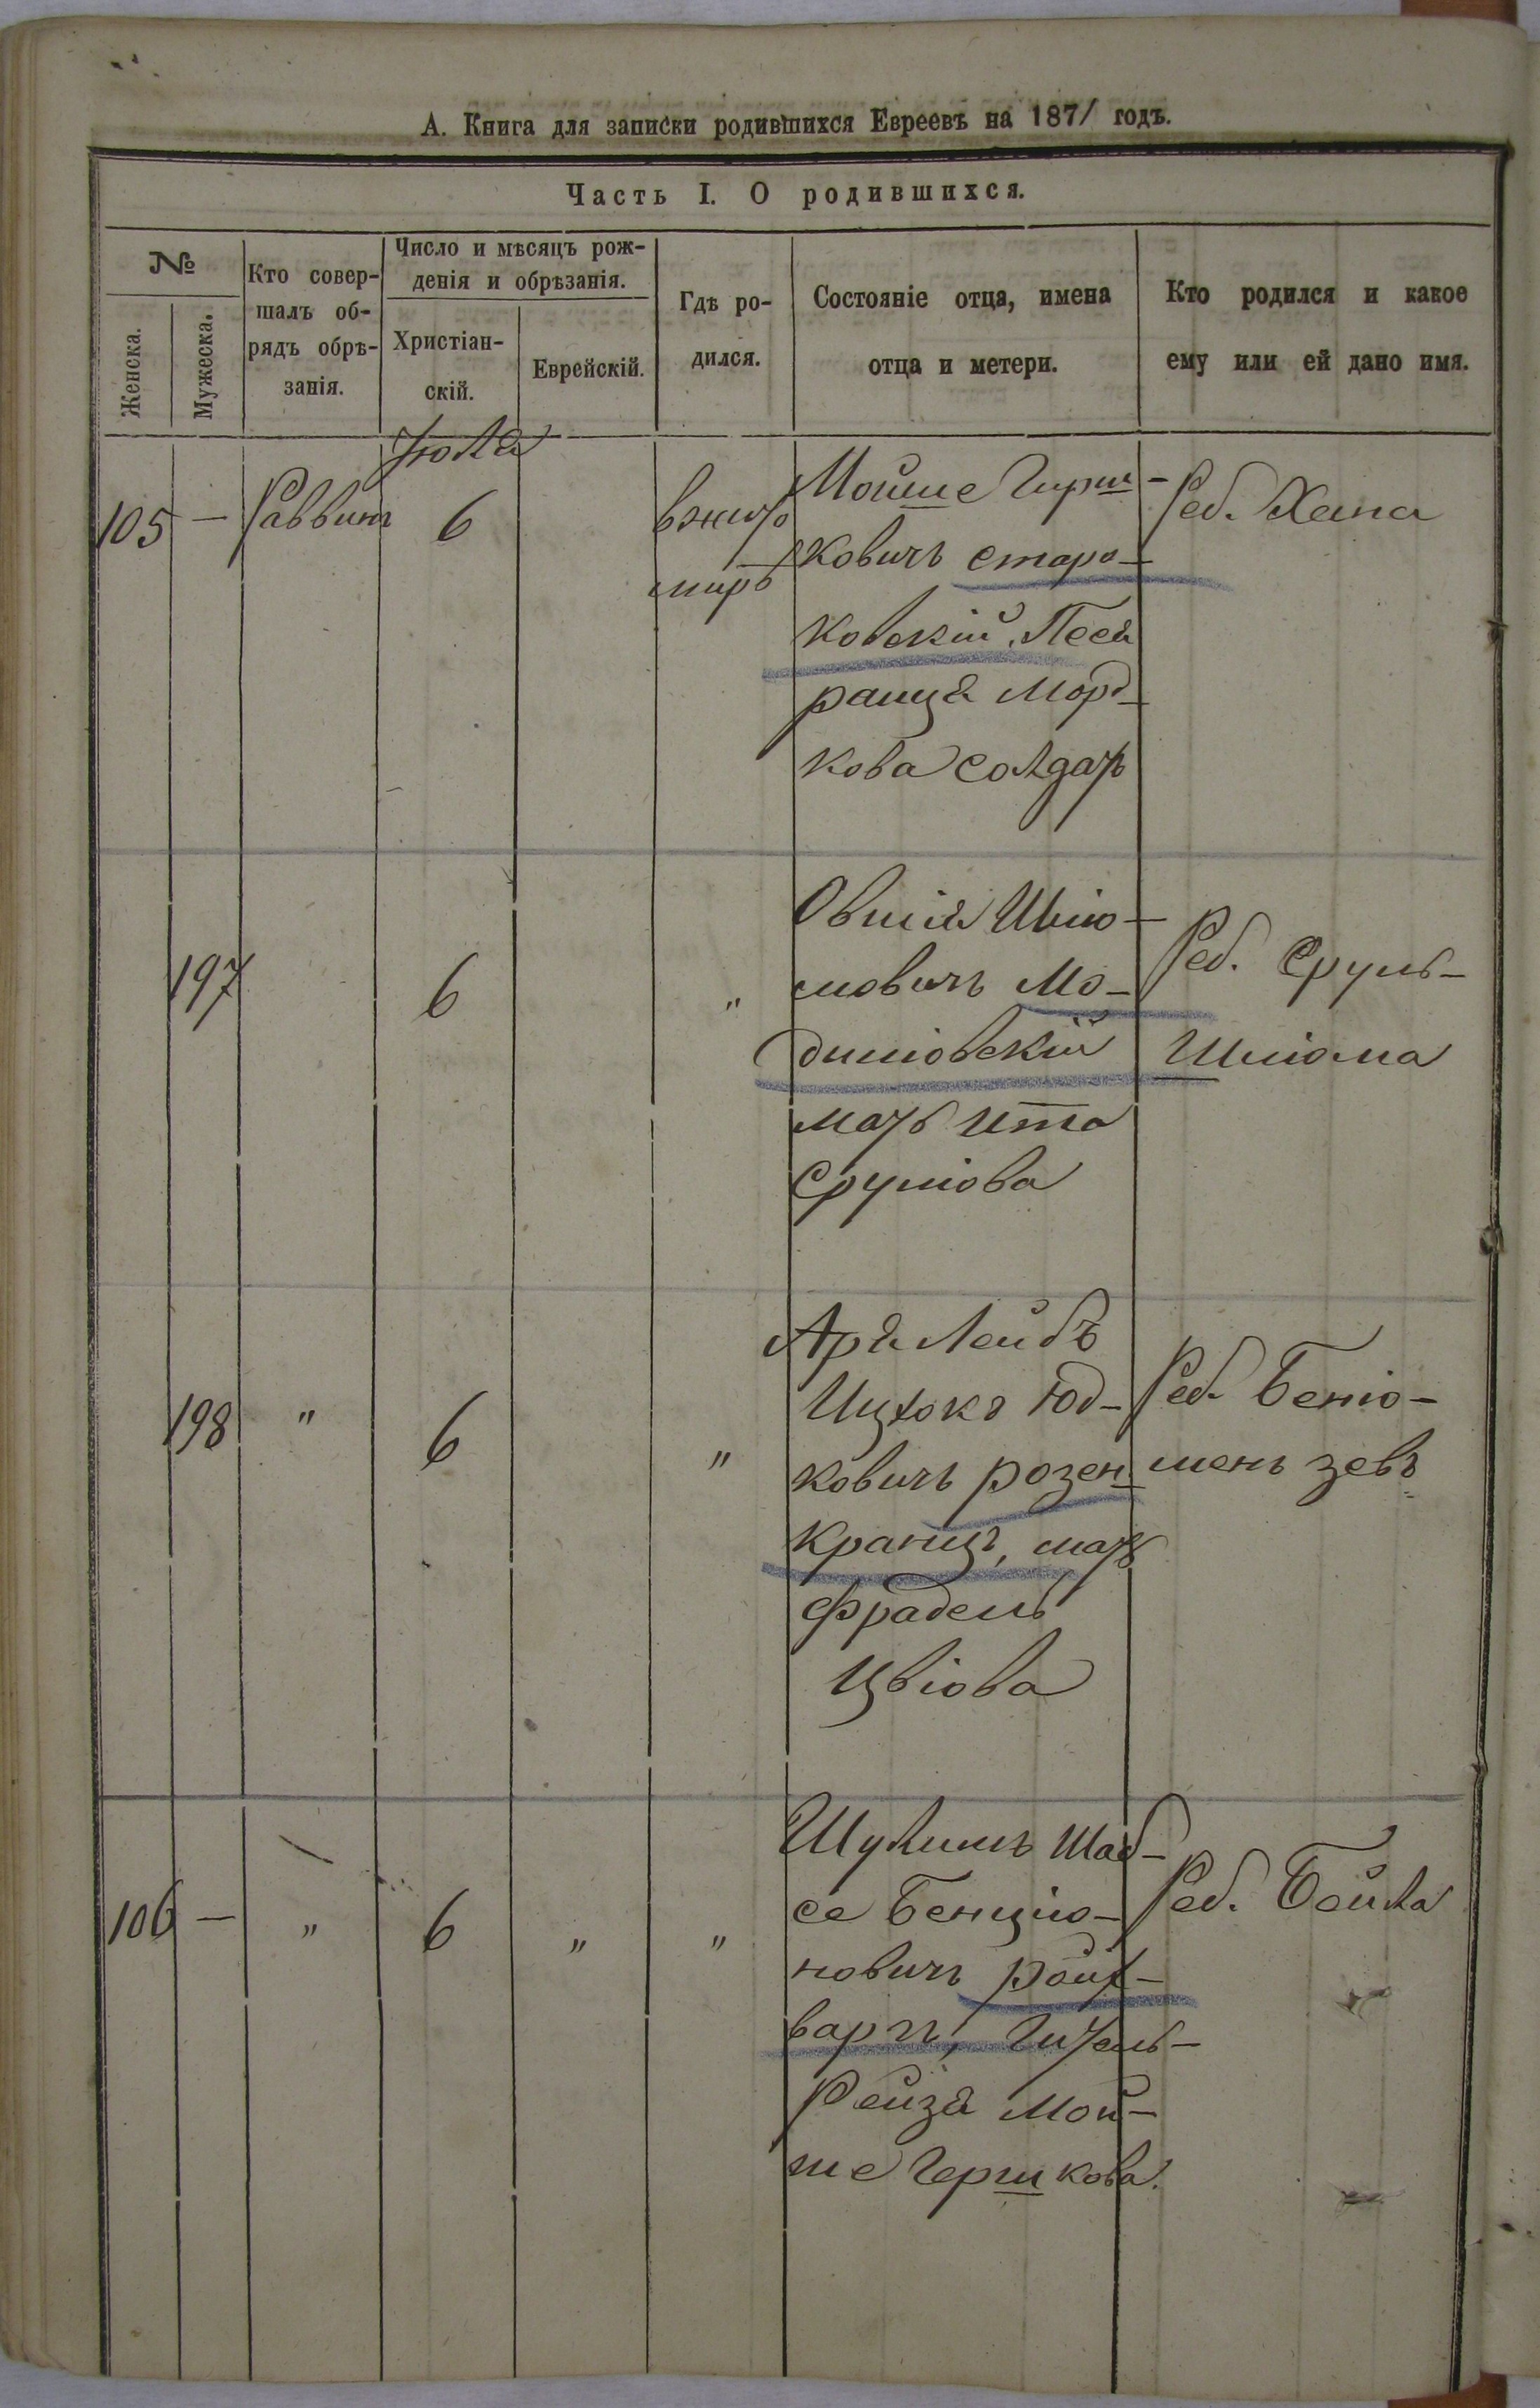 А. Книга для записки родившихся Евреевъ на 1871 годъ.
Часть I. О родившихся.
№
Женска.
Мужеска.
Кто совер-
шалъ об-
рядъ обрѣ-
занія.
Число и мѣсяцъ рож-
денія и обрѣзанія.
Христіан-
скій.
Еврейскій.
Гдѣ ро-
дился.
Состояніе отца, имена
отца и метери.
Кто родился и какое
ему или ей дано имя.
Іюля
105 — Раввинъ 6
вжито
миръ
Мойше Гирш-
ковичъ старо-
ковскій, Песя
раица Морд-
кова солдатъ
Реб. Хана
197 6 "
Овшія Шлю-
мовичъ Мо-
дилювскій
мать Ита
Срулюва
Реб. Сруль-
Шлюма
198 " 6 "
Арія Лейбъ
Ицхокъ Юд-
ковичъ розен-
кранцъ, мать
Фрадель
Цвіова
Реб. Беніо-
менъ зевъ
106 — " 6 " "
Шулимъ Шаб-
се Бенціо-
новичъ ройт-
варгъ, Гитель-
Рейзя Мой-
ше Гершкова.
Реб. Бейла